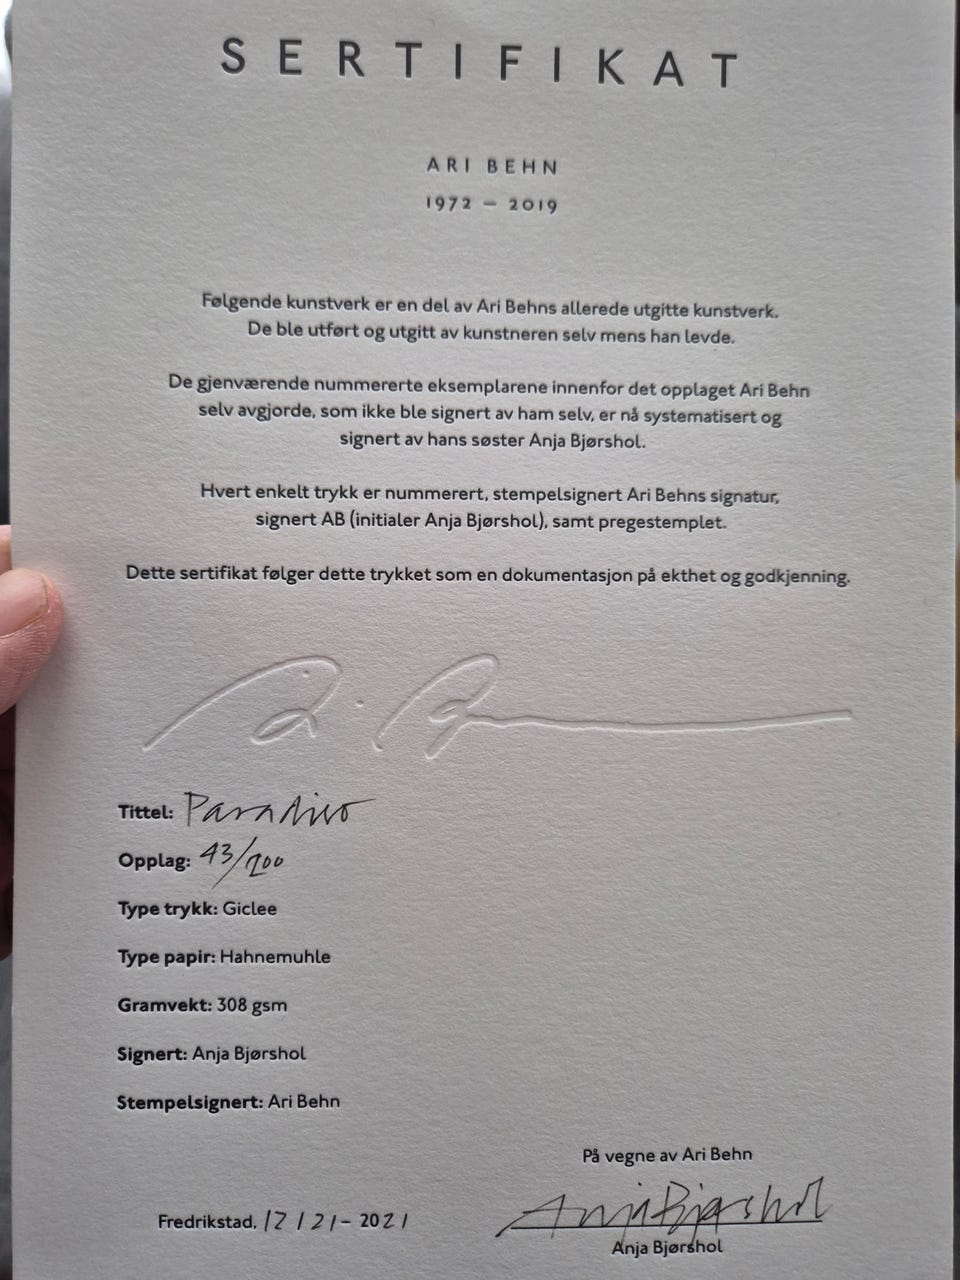 SERTIFIKAT
ARI BEHN
1972 – 2019
Følgende kunstverk er en del av Ari Behns allerede utgitte kunstverk.
De ble utført og utgitt av kunstneren selv mens han levde.
De gjenværende nummererte eksemplarene innenfor det opplaget Ari Behn
selv avgjorde, som ikke ble signert av ham selv, er nå systematisert og
signert av hans søster Anja Bjørshol.
Hvert enkelt trykk er nummerert, stempelsignert Ari Behns signatur,
signert AB (initialer Anja Bjørshol), samt pregestemplet.
Dette sertifikat følger dette trykket som en dokumentasjon på ekthet og godkjenning.
Tittel: Paradiso
Opplag: 43/200
Type trykk: Giclee
Type papir: Hahnemuhle
Gramvekt: 308 gsm
Signert: Anja Bjørshol
Stempelsignert: Ari Behn
På vegne av Ari Behn
Fredrikstad, 2021
Anja Bjørshol
Anja Bjørshol